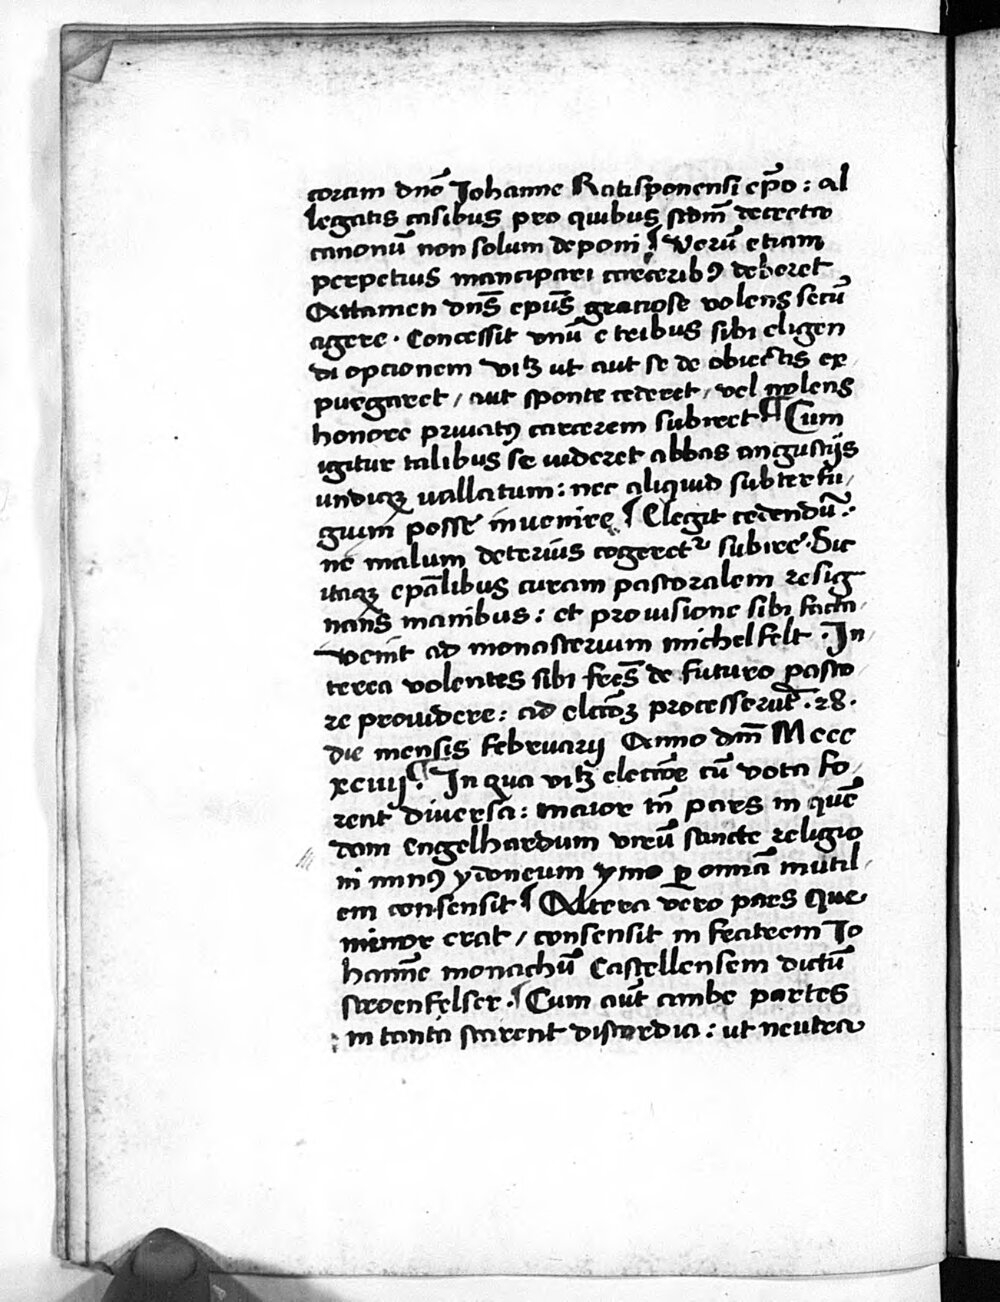 coram dnō Johanne Ratisponensi ep̄o : al
legatis casibus pro quibus scdm̄ decreta
canonū non solum deponi ¶ Verū etiam
perpetuis mancipari carceribꝰ deberet
Attamen dns̄ epus̄ graciose volens secū
agere · Concessit vnū e tribus sibi eligen
di opcionem vitꝫ ut aut se de obiectis ex
purgaret / aut sponte cederet / vel nolens
honore priuatꝰ carcerem subiret ¶ Cum
igitur talibus se uideret abbas angustijs
undiqꝫ uallatum : nec aliquid subterfu,
gium posse inuenire ¶ Elegit cedendū :·
ne malum deterius cogeretᷣ subire · Sic
itaqꝫ epāl̄ibus curam pastoralem resig
nans manibus : et prouisione sibi facta ,
venit ad monasterium michelfelt · In,
terea volentes sibi frēs de futuro pasto
re prouidere : ad elec̄cōꝫ processerūt · 28 ·
die mensis februarij Anno dm̄ M ccc
xciiij ¶ In qua vitꝫ elecc̄oe cū vota fo,
rent diuersa : maior tn̄ pars in quē
dam Engelhardum virū sancte religio
ni minꝰ ydoneum ymo ꝑ omnia inutil,
em consensit ¶ Altera vero pars que
minor erat / consensit in fratrem Jo
hannē monachū Castellensem dictū
stroenfelser · ¶ Cum aūt ambe partes
in tanta starent discordia : ut neutra